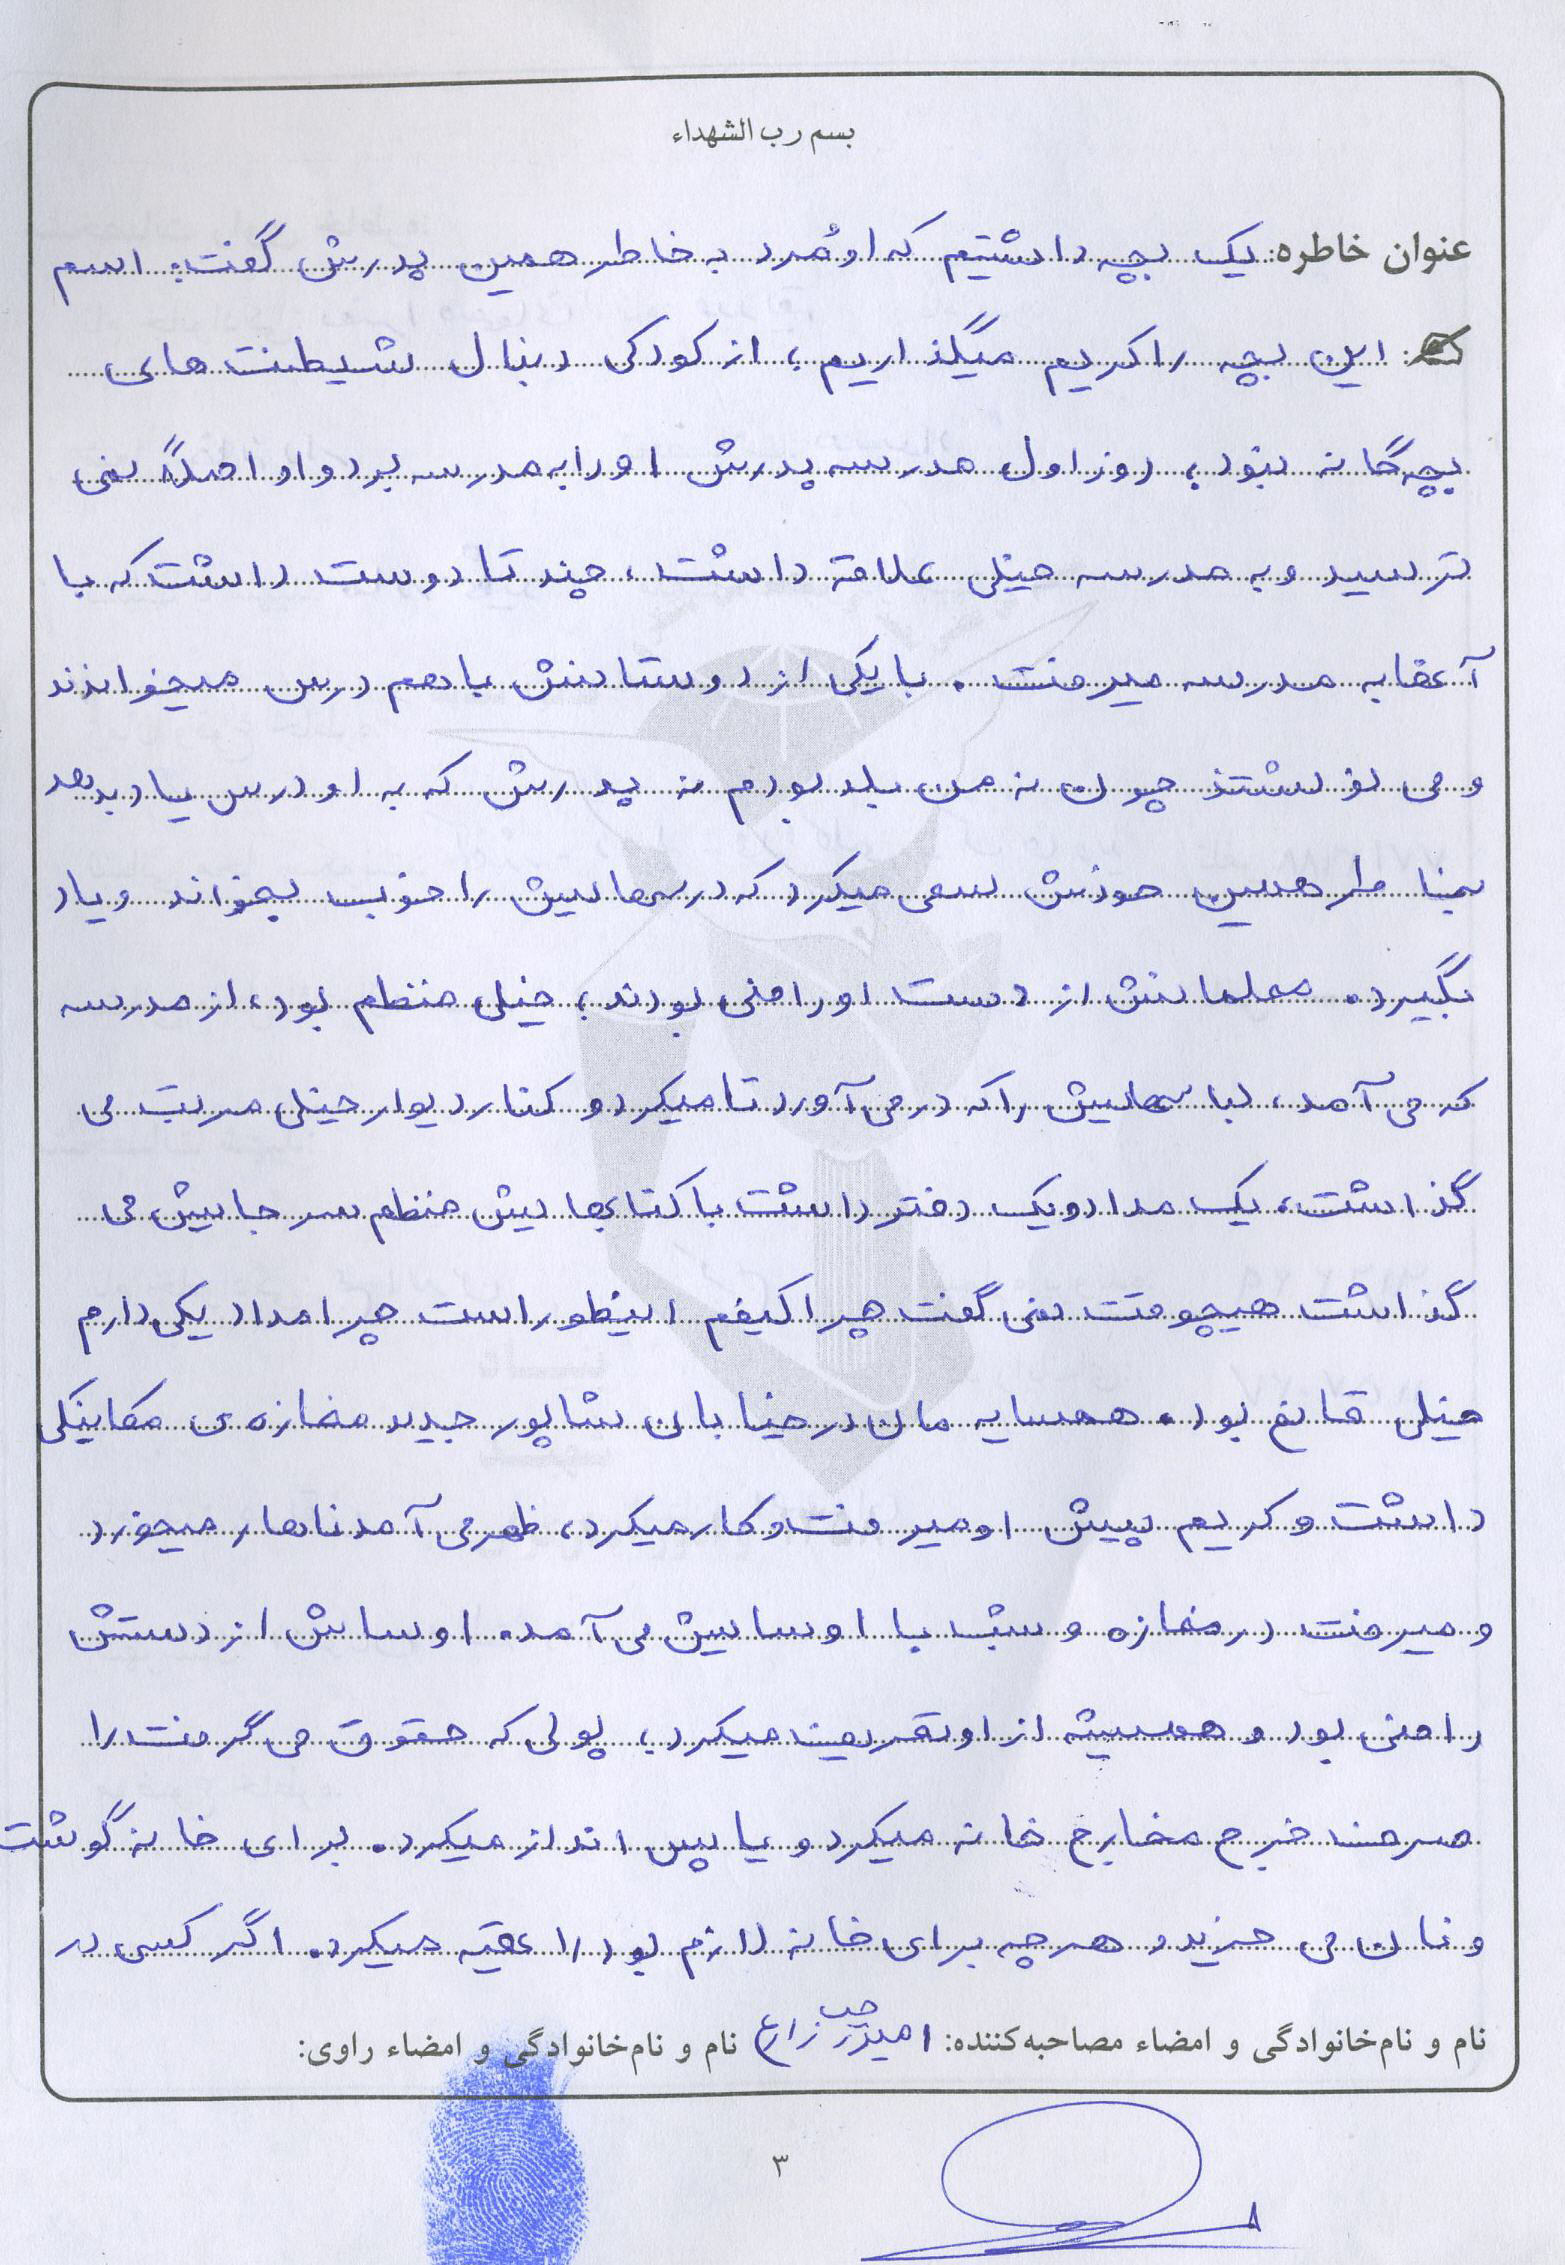 بسم رب الشهداء
عنوان خاطره: یک بچه داشتیم که او مُرد به خاطر همین پدرش گفت: اسم
این بچه را کریم میگذاریم، از کودکی دنبال شیطنت های
بچه گانه نبود، روز اول مدرسه پدرش او را به مدرسه برد و او اصلاً نمی
ترسید و به مدرسه خیلی علاقه داشت، چند تا دوست داشت که با
آنها به مدرسه میرفت. با یکی از دوستانش با هم درس میخواندند
و می نوشتند چون نه من بلد بودم نه پدرش که به او درس یاد بدهد
بخاطر همین خودش سعی میکرد که درسهایش را خوب بخواند و یاد
بگیرد. معلمانش از دست او راضی بودند، خیلی منظم بود، از مدرسه
که می آمد، لباسهایش را که در می آورد تا میکرد و کنار دیوار خیلی مرتب می
گذاشت، یک مداد و یک دفتر داشت با کتابهایش منظم سر جایش می
گذاشت هیچوقت نمی گفت چرا کیفم اینطور است چرا مداد یکی دارم
خیلی قانع بود. همسایه مان در خیابان شاپور جدید مغازه ی مکانیکی
داشت و کریم پیش او میرفت و کار میکرد، ظهر می آمد ناهار میخورد
و میرفت در مغازه و شب با اوسایش می آمد. اوسایش از دستش
راضی بود و همیشه از او تعریف میکرد، پولی که حقوق می گرفت را
صرف خرج مخارج خانه میکرد و یا پس انداز میکرد. برای خانه گوشت
و نان می خرید و هر چه برای خانه لازم بود را تهیه میکرد. اگر کسی در
نام و نام‌خانوادگی و امضاء مصاحبه‌کننده: زارع نام و نام‌خانوادگی و امضاء راوی:
۳